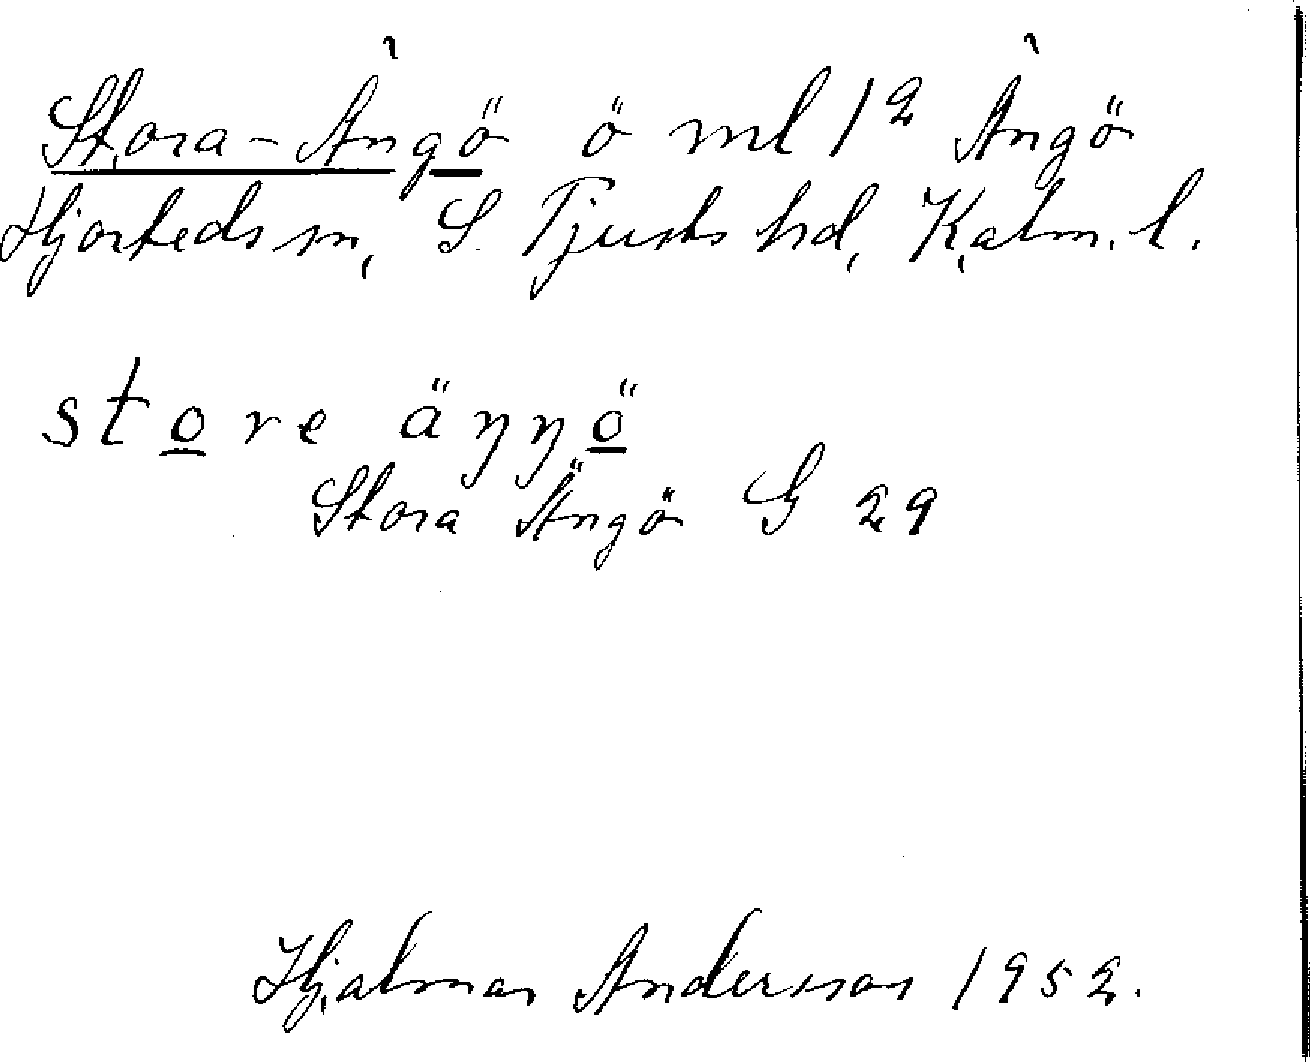 Stora-Ängö ö ml 1² Ängö
Hjorteds sn, S. Tjusts hd, Kalm. l.
store äŋŋö
Stora Ängö G 29
Hjalmar Andersson 1952.